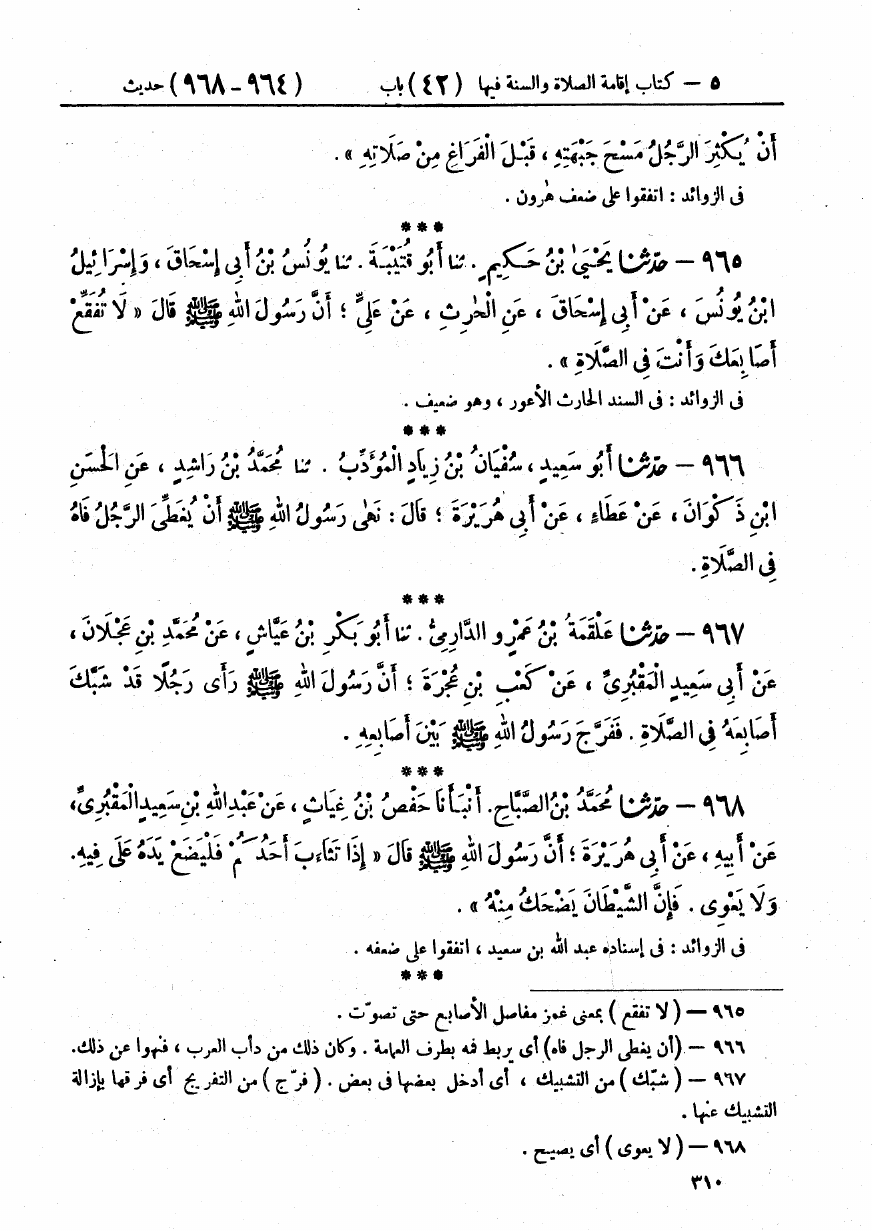 ٥ – كتاب إقامة الصلاة والسنة فيها (٤٢) باب (٩٦٤-٩٦٨) حديث
أَنْ يُكْثِرَ الرَّجُلُ مَسْحَ جَبْهَتِهِ ، قَبْلَ الْفَرَاغِ مِنْ صَلَاتِهِ » .
فى الزوائد : اتفقوا على ضعف هٰرون .
***
٩٦٥ – حدّثنا يَحْيَىٰ بْنُ حَكِيمٍ . ثنا أَبُو قُتَيْبَةَ . ثنا يُونُسُ بْنُ أَبِى إِسْحَاقَ ، وَإِسْرَائِيلُ
ابْنُ يُونُسَ ، عَنْ أَبِى إِسْحَاقَ ، عَنِ الْحٰرِثِ ، عَنْ عَلِىٍّ ؛ أَنَّ رَسُولَ اللهِ ﷺ قَالَ « لَا تُفَقِّعْ
أَصَابِعَكَ وَأَنْتَ فِى الصَّلَاةِ » .
فى الزوائد : فى السند الحارث الأعور ، وهو ضعيف .
***
٩٦٦ – حدّثنا أَبُو سَعِيدٍ ، سُفْيَانُ بْنُ زِيَادٍ الْمُؤَدِّبُ . ثنا مُحَمَّدُ بْنُ رَاشِدٍ ، عَنِ الْحَسَنِ
ابْنِ ذَكْوَانَ ، عَنْ عَطَاءٍ ، عَنْ أَبِى هُرَيْرَةَ ؛ قَالَ : نَهٰى رَسُولُ اللهِ ﷺ أَنْ يُغَطِّىَ الرَّجُلُ فَاهُ
فِى الصَّلَاةِ .
***
٩٦٧ – حدّثنا عَلْقَمَةُ بْنُ عَمْرٍو الدَّارِمِىُّ . ثنا أَبُو بَكْرِ بْنُ عَيَّاشٍ ، عَنْ مُحَمَّدِ بْنِ عَجْلَانَ ،
عَنْ أَبِى سَعِيدٍ الْمَقْبُرِىِّ ، عَنْ كَعْبِ بْنِ عُجْرَةَ ؛ أَنَّ رَسُولَ اللهِ ﷺ رَأَى رَجُلًا قَدْ شَبَّكَ
أَصَابِعَهُ فِى الصَّلَاةِ . فَفَرَّجَ رَسُولُ اللهِ ﷺ بَيْنَ أَصَابِعِهِ .
***
٩٦٨ – حدّثنا مُحَمَّدُ بْنُ الصَّبَّاحِ. أَنْبَأَنَا حَفْصُ بْنُ غِيَاثٍ ، عَنْ عَبْدِ اللهِ بْنِ سَعِيدٍ الْمَقْبُرِىِّ،
عَنْ أَبِيهِ ، عَنْ أَبِى هُرَيْرَةَ ؛ أَنَّ رَسُولَ اللهِ ﷺ قَالَ « إِذَا تَثَاءَبَ أَحَدُكُمْ فَلْيَضَعْ يَدَهُ عَلَى فِيهِ.
وَلَا يَعْوِى . فَإِنَّ الشَّيْطَانَ يَضْحَكُ مِنْهُ » .
فى الزوائد : فى إسناده عبد الله بن سعيد ، اتفقوا على ضعفه .
***
٩٦٥ – ( لا تفقع ) بمعنى غمز مفاصل الأصابع حتى تصوّت .
٩٦٦ – (أن يغطى الرجل فاه) أى يربط فمه بطرف العمامة . وكان ذلك من دأب العرب ، فنهوا عن ذلك.
٩٦٧ – ( شبّك ) من التشبيك ، أى أدخل بعضها فى بعض . ( فرّج ) من التفريج أى فرقها بإزالة
التشبيك عنها .
٩٦٨ – ( لا يعوى ) أى يصيح .
٣١٠